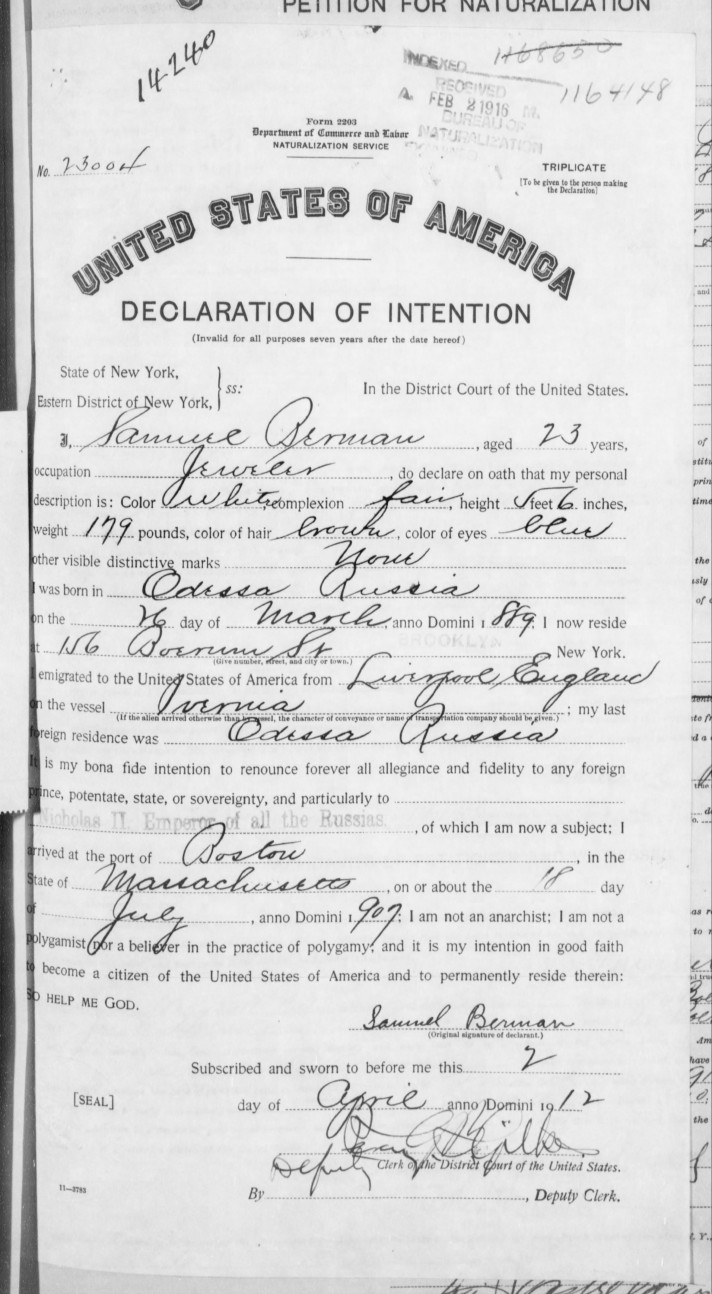 PETITION FOR NATURALIZATION
14240
INDEXED 1168650
RECEIVED 1164148
FEB 2 1916
BUREAU OF
NATURALIZATION
Form 2203
Department of Commerce and Labor
NATURALIZATION SERVICE
No. 23004
TRIPLICATE
[To be given to the person making
the Declaration]
UNITED STATES OF AMERICA
DECLARATION OF INTENTION
(Invalid for all purposes seven years after the date hereof)
State of New York,
Eastern District of New York, } ss: In the District Court of the United States.
I, Samuel Berman, aged 23 years,
occupation Jeweler, do declare on oath that my personal
description is: Color White, complexion fair, height 5 feet 6 inches,
weight 179 pounds, color of hair brown, color of eyes blue
other visible distinctive marks None
I was born in Odessa Russia
on the 26 day of March, anno Domini 1889; I now reside
at 156 Boerum St BROOKLYN New York.
(Give number, street, and city or town.)
I emigrated to the United States of America from Liverpool, England
on the vessel Ivernia; my last
(If the alien arrived otherwise than by vessel, the character of conveyance or name of transportation company should be given.)
foreign residence was Odessa Russia
It is my bona fide intention to renounce forever all allegiance and fidelity to any foreign
prince, potentate, state, or sovereignty, and particularly to
Nicholas II. Emperor of all the Russias, of which I am now a subject; I
arrived at the port of Boston, in the
State of Massachusetts, on or about the 18 day
of July, anno Domini 1907; I am not an anarchist; I am not a
polygamist nor a believer in the practice of polygamy; and it is my intention in good faith
to become a citizen of the United States of America and to permanently reside therein:
SO HELP ME GOD.
Samuel Berman
(Original signature of declarant.)
Subscribed and sworn to before me this 2
[SEAL] day of April anno Domini 1912
Deputy Clerk of the District Court of the United States.
11—2783
By, Deputy Clerk.